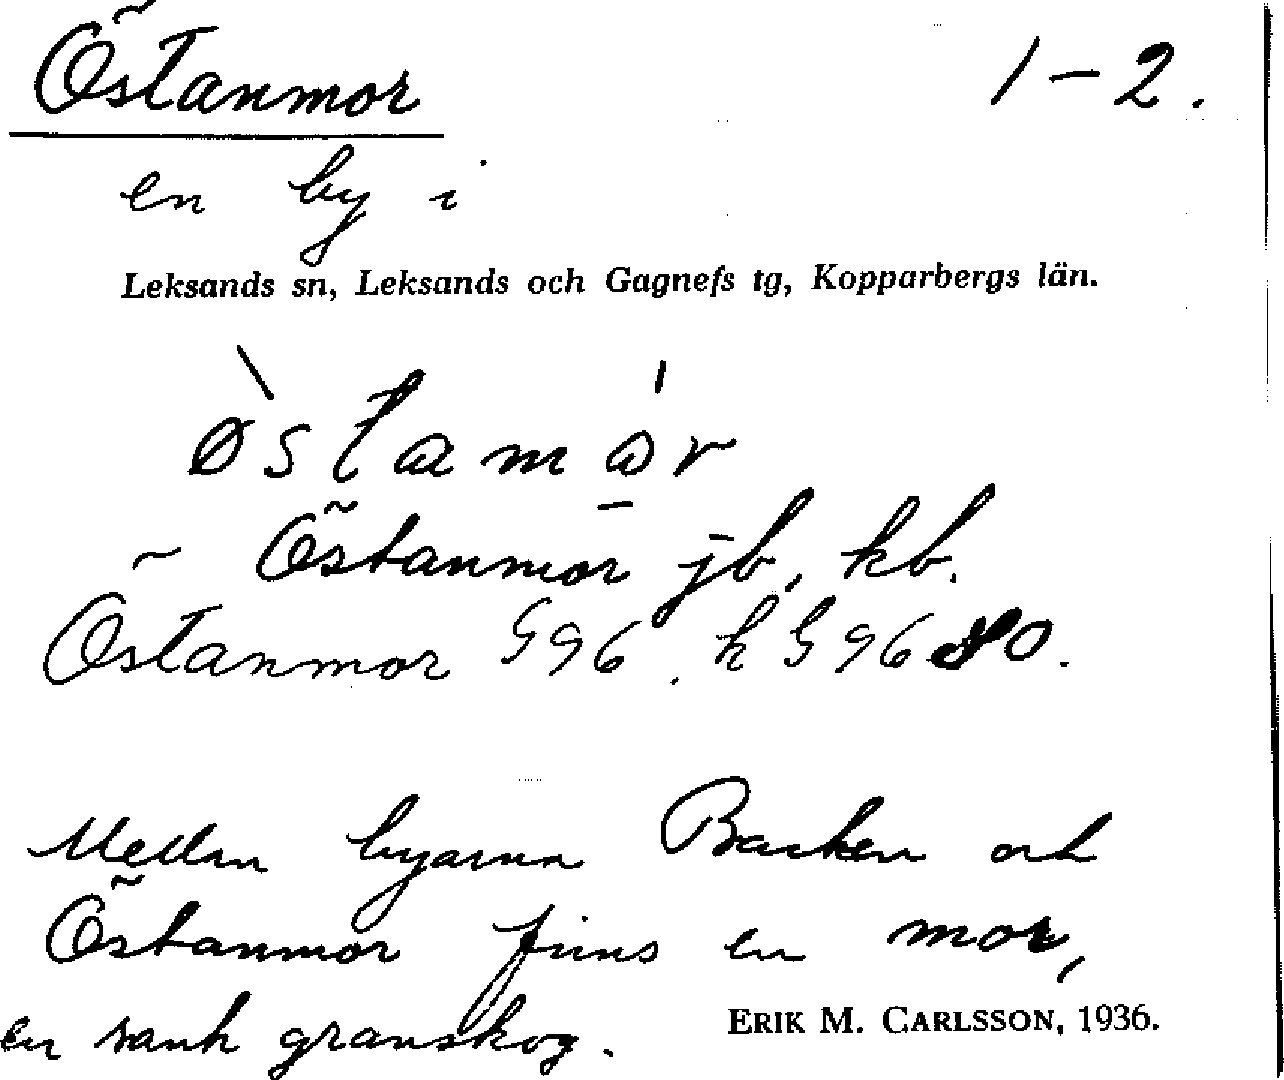 Östanmor 1-2.
en by i
Leksands sn, Leksands och Gagnefs tg, Kopparbergs län.
östamår
Östanmor jb, kb.
Östanmor G96. h G96 80.
Mellan byarna Backen och
Östanmor finns en mor,
en sank granskog.
ERIK M. CARLSSON, 1936.